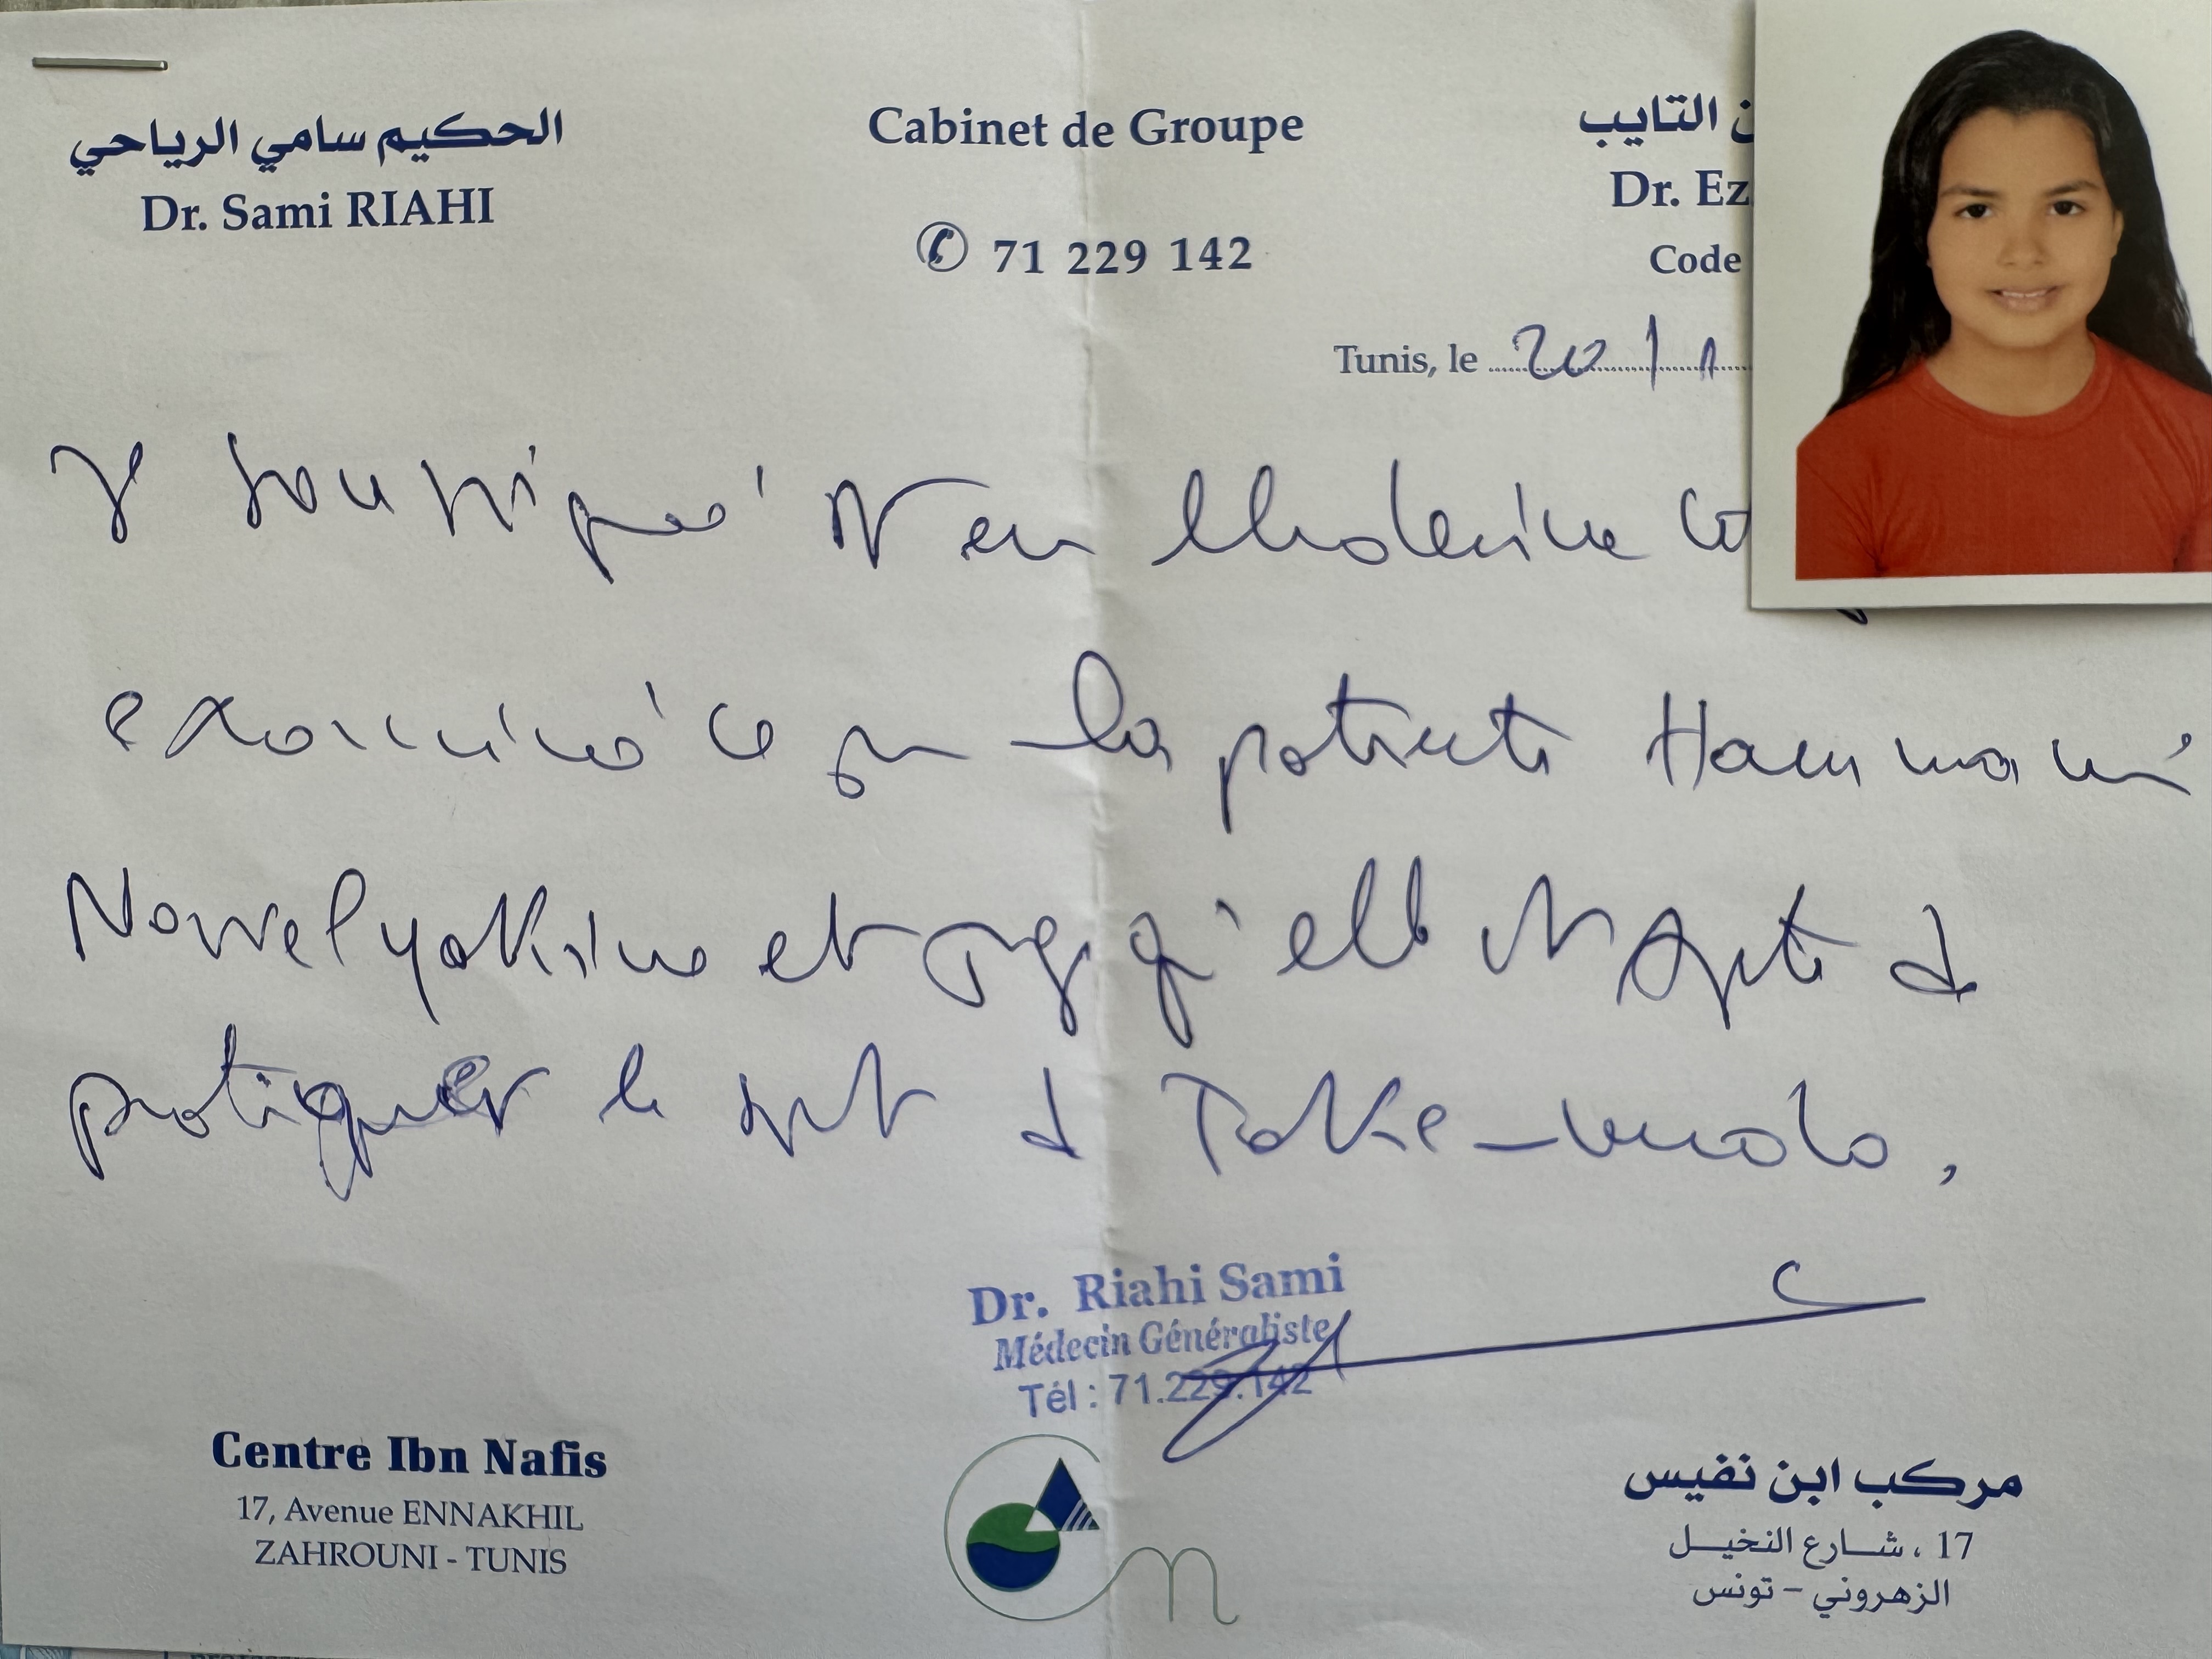 الحكيم سامي الرياحي
Dr. Sami RIAHI
Cabinet de Groupe
71 229 142
التايب
Dr. Ez
Code
Tunis, le 20/1
Je soussigné Dr en Medecine
examiné ce jour la patiente Hammami
Nourelyakine et qu'elle est Apte à
pratiquer le sport de Taike-wondo.
Dr. Riahi Sami
Médecin Généraliste
Tél : 71.229.142
Centre Ibn Nafis
17, Avenue ENNAKHIL
ZAHROUNI - TUNIS
مركب ابن نفيس
17 ، شارع النخيل
الزهروني - تونس